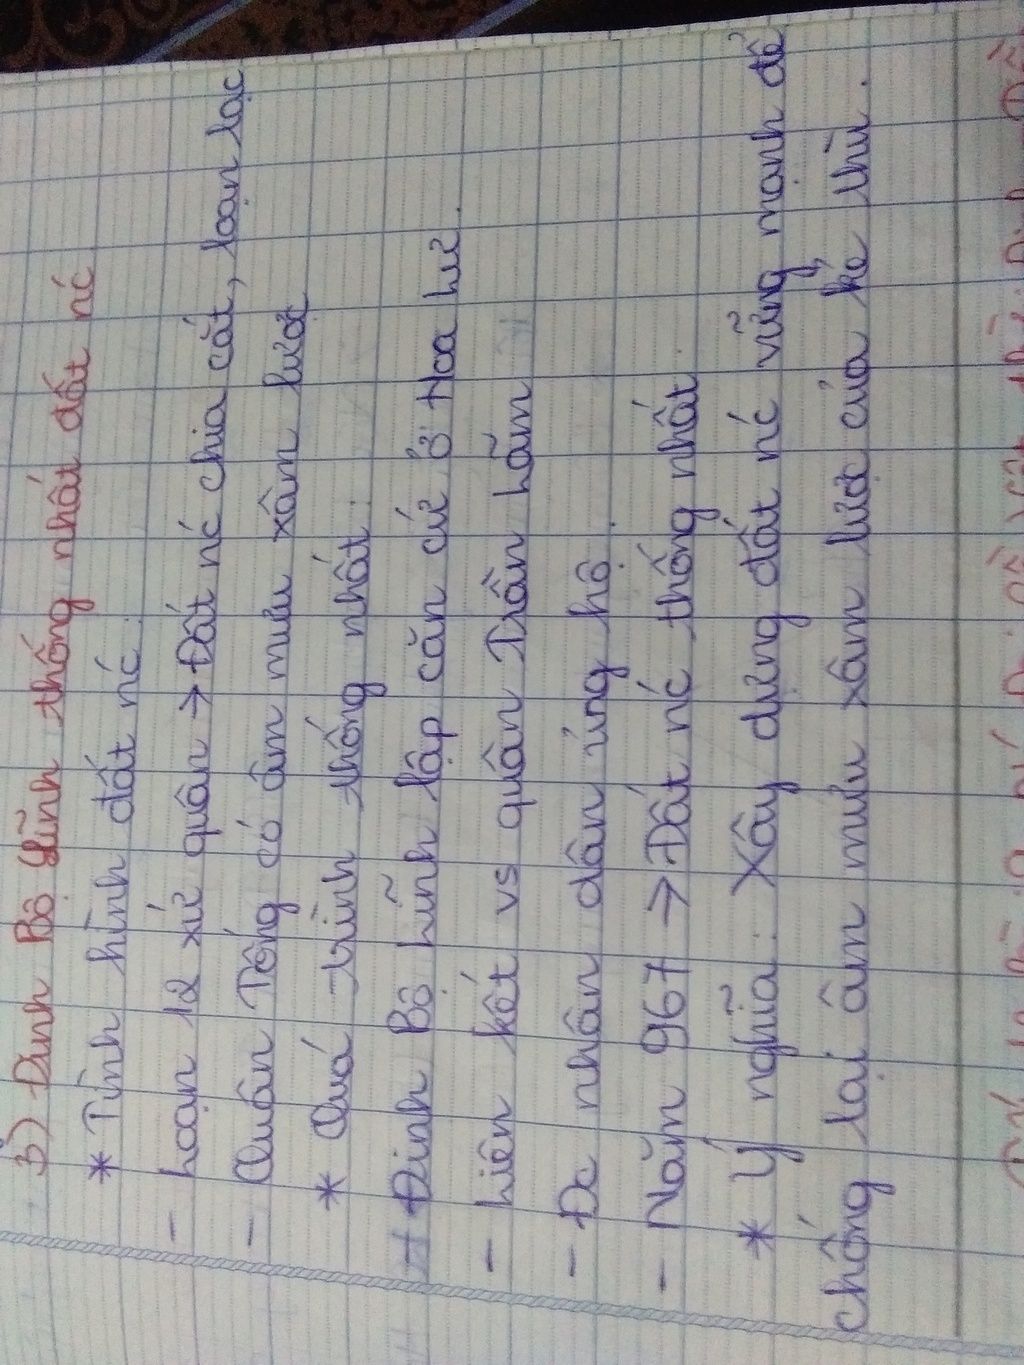 3) Đinh Bộ Lĩnh thống nhất đất nc
* Tình hình đất nc.
- Loạn 12 xứ quân → Đất nc chia cắt, loạn lạc
- Quân Tống có âm mưu xâm lược
* Quá trình thống nhất:
+ Đinh Bộ Lĩnh lập căn cứ ở Hoa Lư.
- Liên kết vs quân Trần Lãm
- Đc nhân dân ủng hộ.
- Năm 967 → Đất nc thống nhất.
* Ý nghĩa: Xây dựng đất nc vững mạnh để
chống lại âm mưu xâm lược của kẻ thù.